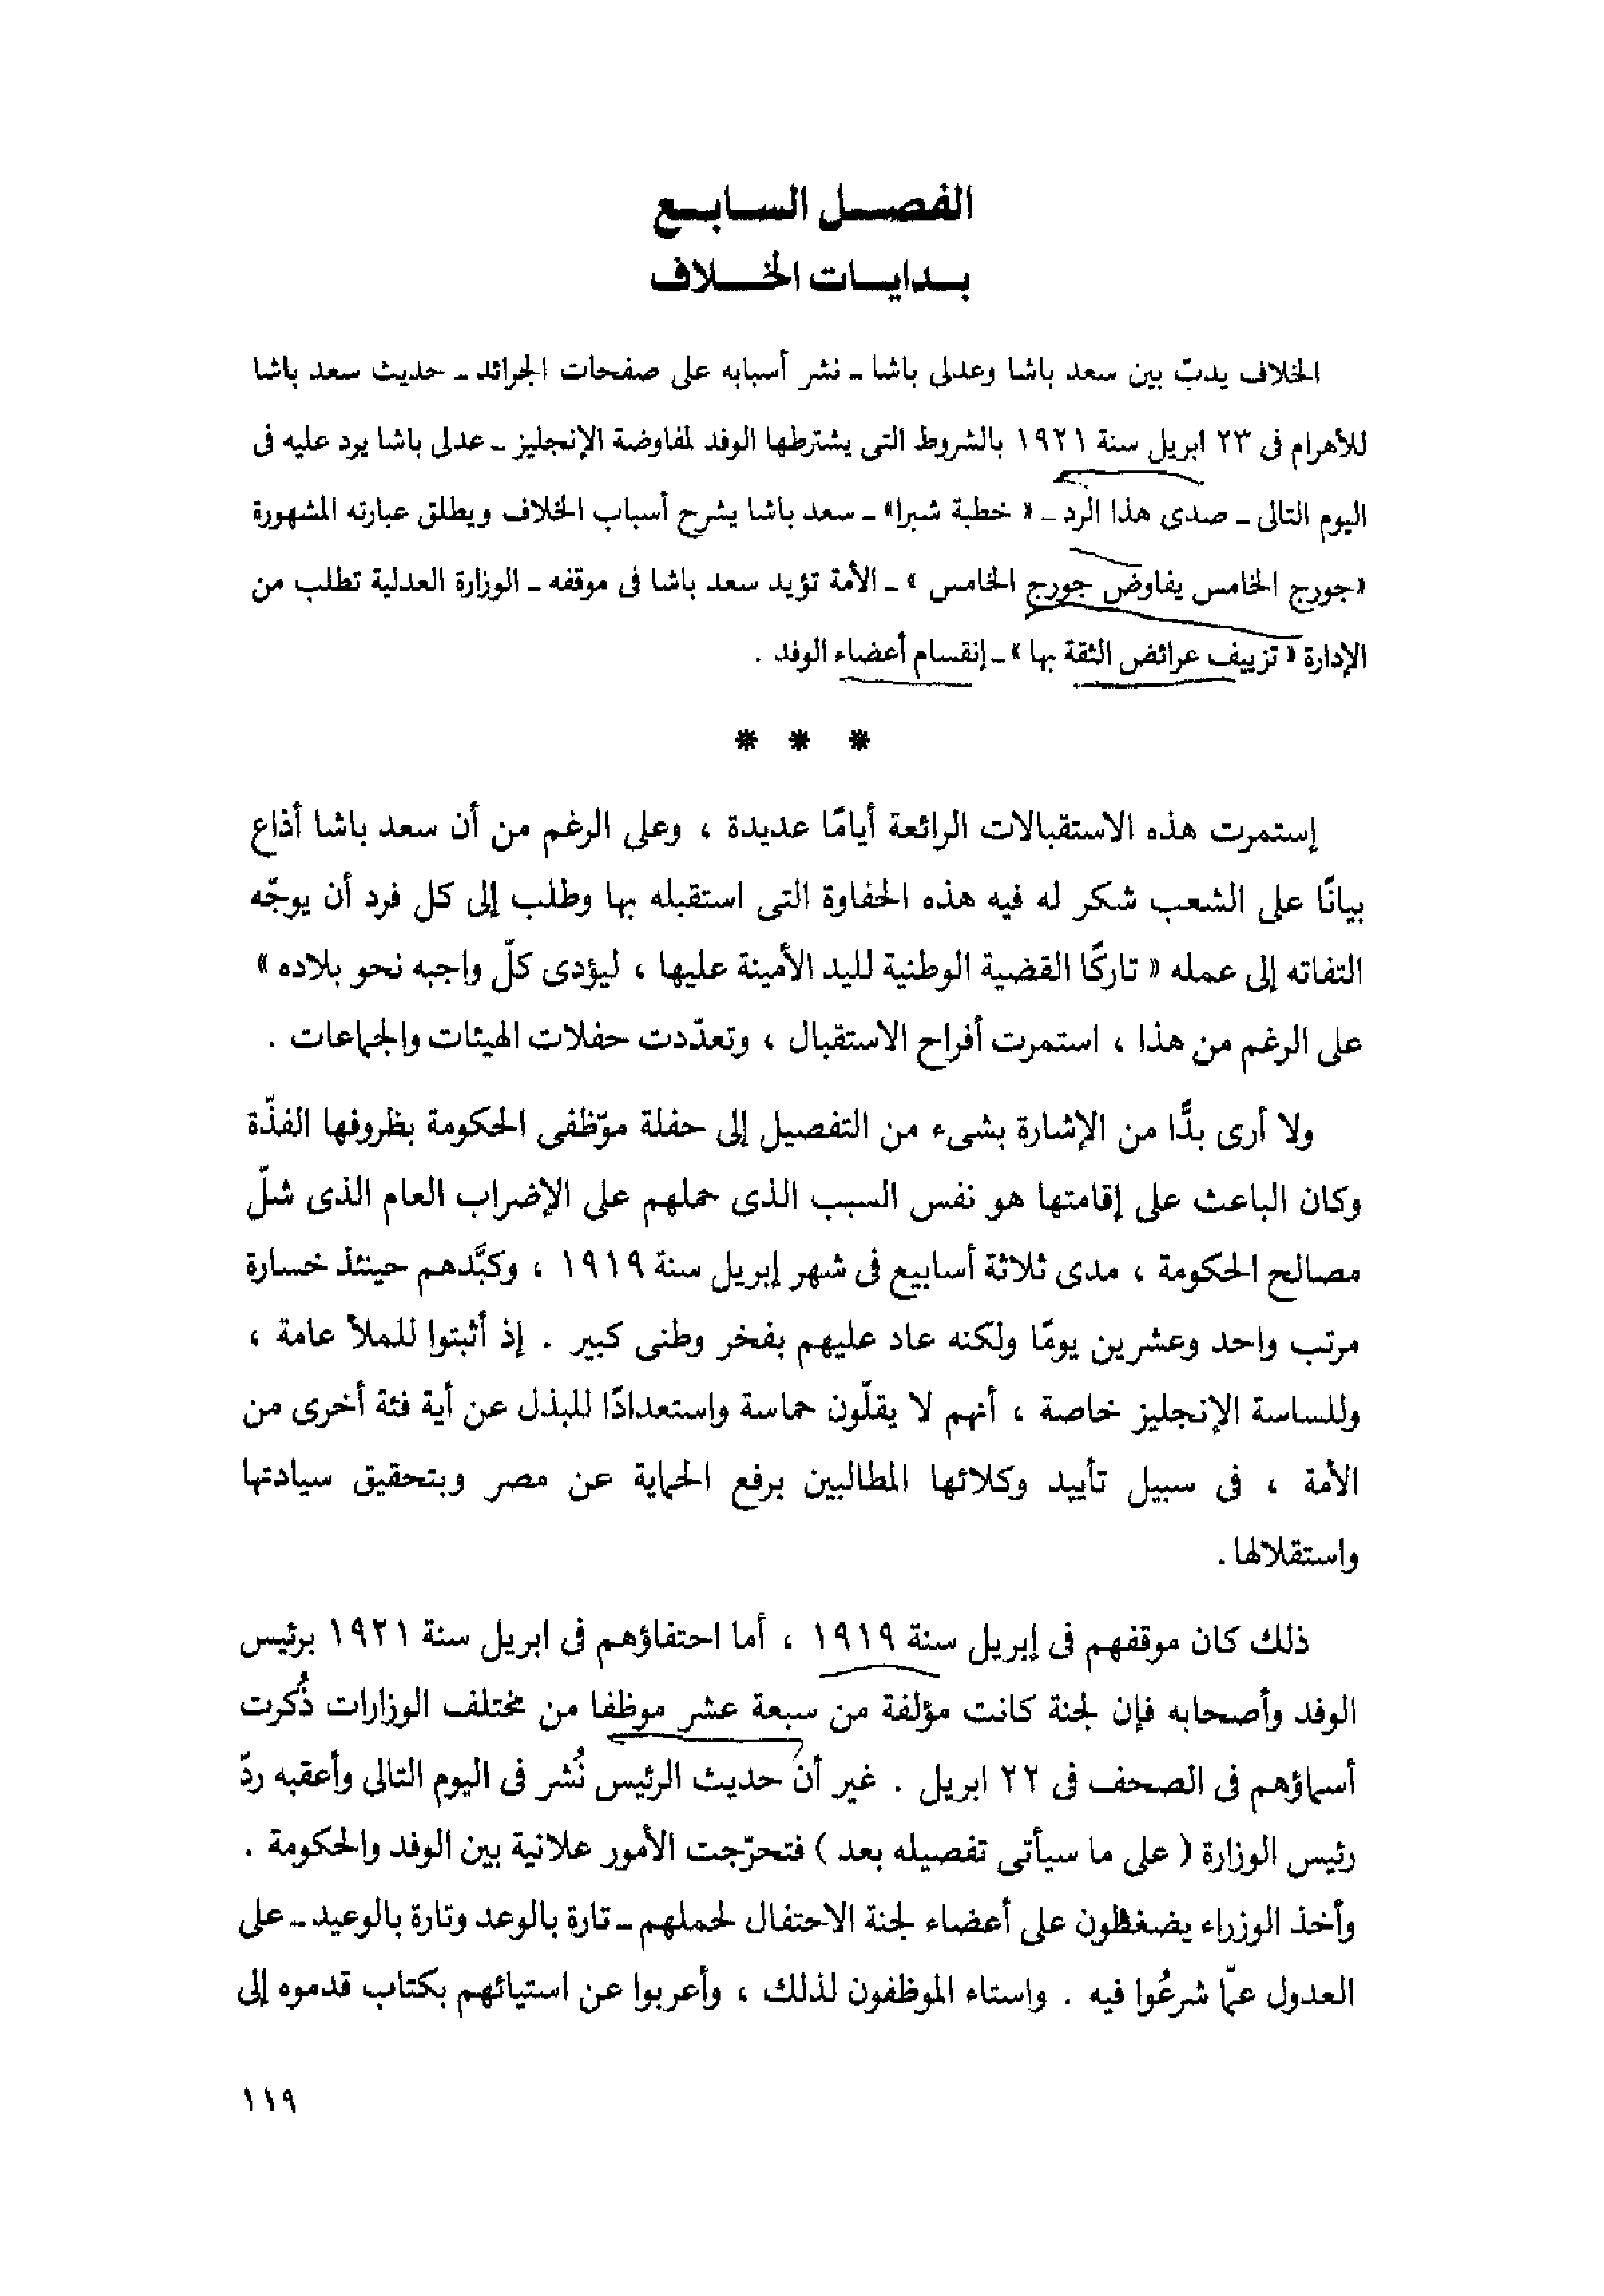 الفصل السابع
بدايات الخلاف
الخلاف يدبّ بين سعد باشا وعدلى باشا ـ نشر أسبابه على صفحات الجرائد ـ حديث سعد باشا
للأهرام فى ٢٣ ابريل سنة ١٩٢١ بالشروط التى يشترطها الوفد لمفاوضة الإنجليز ـ عدلى باشا يرد عليه فى
اليوم التالى ـ صدى هذا الرد ـ « خطبة شبرا» ـ سعد باشا يشرح أسباب الخلاف ويطلق عبارته المشهورة
«جورج الخامس يفاوض جورج الخامس » ـ الأمة تؤيد سعد باشا فى موقفه ـ الوزارة العدلية تطلب من
الإدارة « تزييف عرائض الثقة بها » ـ إنقسام أعضاء الوفد .
* * *
إستمرت هذه الاستقبالات الرائعة أيامًا عديدة ، وعلى الرغم من أن سعد باشا أذاع
بيانًا على الشعب شكر له فيه هذه الحفاوة التى استقبله بها وطلب إلى كل فرد أن يوجّه
التفاته إلى عمله « تاركًا القضية الوطنية لليد الأمينة عليها ، ليؤدى كلّ واجبه نحو بلاده »
على الرغم من هذا ، استمرت أفراح الاستقبال ، وتعدّدت حفلات الهيئات والجماعات .
ولا أرى بدًّا من الإشارة بشىء من التفصيل إلى حفلة موّظفى الحكومة بظروفها الفذّة
وكان الباعث على إقامتها هو نفس السبب الذى حملهم على الإضراب العام الذى شلّ
مصالح الحكومة ، مدى ثلاثة أسابيع فى شهر إبريل سنة ١٩١٩ ، وكبَّدهم حينئذ خسارة
مرتب واحد وعشرين يومًا ولكنه عاد عليهم بفخر وطنى كبير . إذ أثبتوا للملأ عامة ،
وللساسة الإنجليز خاصة ، أنهم لا يقلّون حماسة واستعدادًا للبذل عن أية فئة أخرى من
الأمة ، فى سبيل تأييد وكلائها المطالبين برفع الحماية عن مصر وبتحقيق سيادتها
واستقلالها .
ذلك كان موقفهم فى إبريل سنة ١٩١٩ ، أما احتفاؤهم فى ابريل سنة ١٩٢١ برئيس
الوفد وأصحابه فإن لجنة كانت مؤلفة من سبعة عشر موظفا من مختلف الوزارات ذُكرت
أسماؤهم فى الصحف فى ٢٢ ابريل . غير أن حديث الرئيس نُشر فى اليوم التالى وأعقبه ردّ
رئيس الوزارة ( على ما سيأتى تفصيله بعد ) فتحرّجت الأمور علانية بين الوفد والحكومة .
وأخذ الوزراء يضغطون على أعضاء لجنة الاحتفال لحملهم ـ تارة بالوعد وتارة بالوعيد ـ على
العدول عمّا شرعُوا فيه . واستاء الموظفون لذلك ، وأعربوا عن استيائهم بكتاب قدموه إلى
١١٩